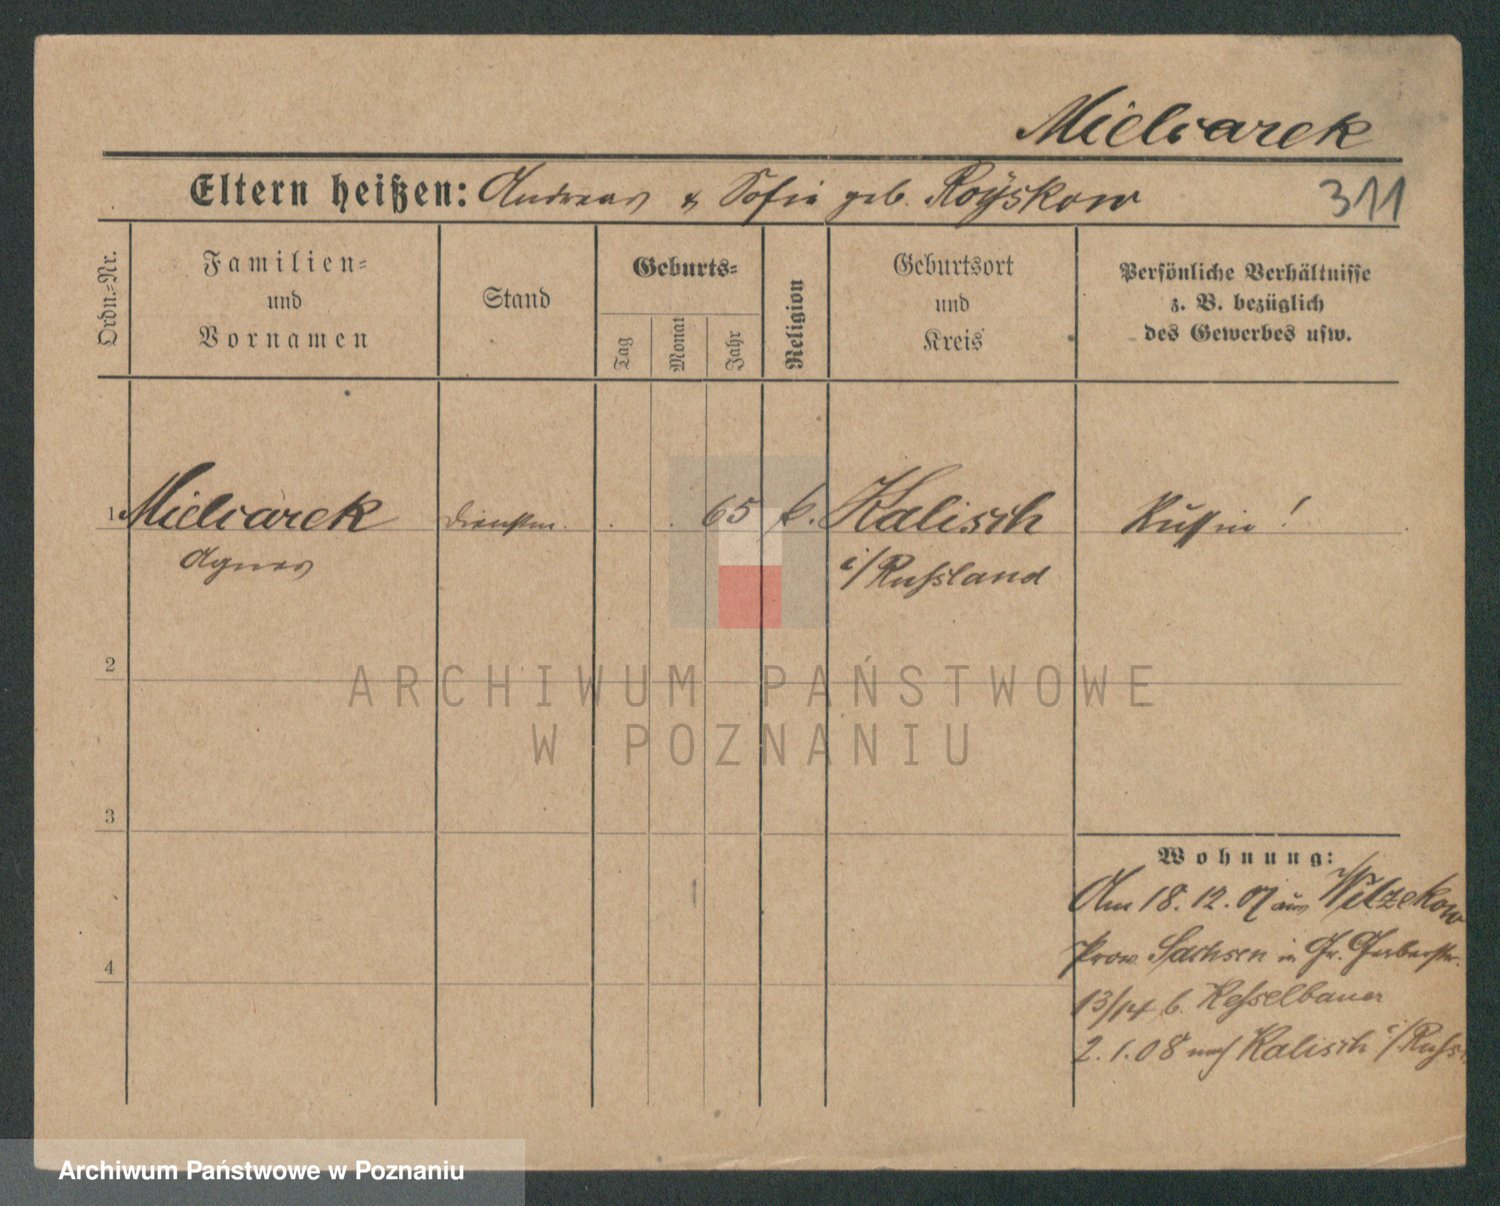 Mielcarek
Eltern heißen: Andreas & Sofie geb. Royskow
311
Ordn.-Nr.
Familien-
und
Vornamen
Stand
Geburts-
Tag
Monat
Jahr
Religion
Geburtsort
und
Kreis
Persönliche Verhältnisse
z. B. bezüglich
des Gewerbes usw.
1 Mielcarek 65 k. Kalisch Russin!
Agnes i/Russland
2
ARCHIWUM PAŃSTWOWE
W POZNANIU
3
Wohnung:
Am 18. 12. 07 aus Witzekow
Prov. Sachsen in Gr. Gerberstr.
4
13/14 b. Kesselbauer
2. 1. 08 nach Kalisch i/Russ.
Archiwum Państwowe w Poznaniu